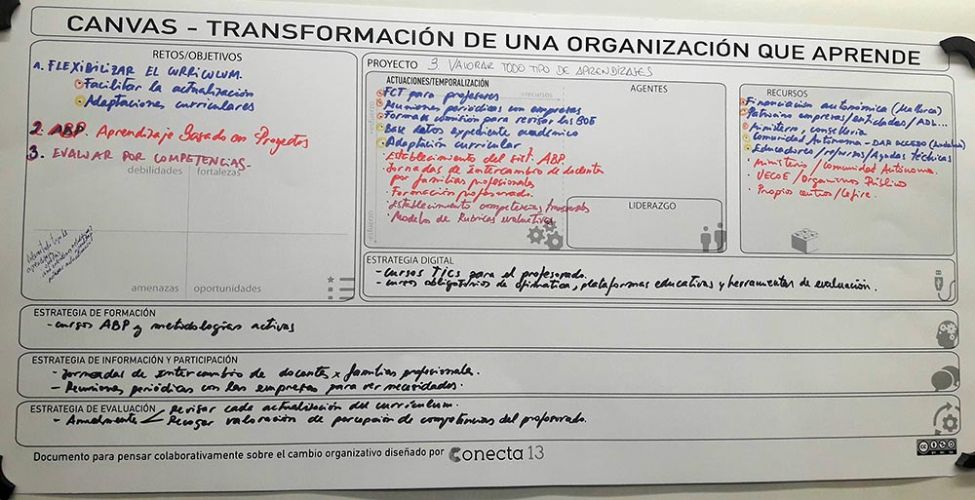 CANVAS - TRANSFORMACIÓN DE UNA ORGANIZACIÓN QUE APRENDE
RETOS/OBJETIVOS
1. FLEXIBILIZAR EL CURRÍCULUM.
Facilitar la actualización
Adaptaciones curriculares
2. ABP. Aprendizaje Basado en Proyectos
3. EVALUAR POR COMPETENCIAS.
debilidades fortalezas
amenazas oportunidades
PROYECTO 3 VALORAR TODO TIPO DE APRENDIZAJES
ACTUACIONES/TEMPORALIZACIÓN
recursos
esfuerzo
FCT para profesores
Reuniones periódicas con empresas
Formar comisión para revisar los BOE
Base datos expediente académico
Adaptación curricular
- Establecimiento del sist. ABP.
- Jornadas de Intercambio de docentes
por familias profesionales
- Formación profesorado.
- Establecimiento competencias
- Modelos de Rúbricas evaluativas
AGENTES
LIDERAZGO
RECURSOS
Financiación autonómica
Patrocinio empresas/entidades/ADL...
Ministerio, consellería
Comunidad Autónoma -
Educadores
· Ministerio / Comunidad Autónoma.
Organismo Público
· Propios centros/Cefire.
ESTRATEGIA DIGITAL
- cursos TICs para el profesorado.
- cursos obligatorios de ofimática, plataformas educativas y herramientas de evaluación.
ESTRATEGIA DE FORMACIÓN
- cursos ABP y metodologías activas
ESTRATEGIA DE INFORMACIÓN Y PARTICIPACIÓN
- Jornadas de Intercambio de docentes x familias profesionales.
- Reuniones periódicas con las empresas para ver necesidades.
ESTRATEGIA DE EVALUACIÓN
Revisar cada actualización del currículum.
- Anualmente
Recoger valoración de percepción de competencias del profesorado.
Documento para pensar colaborativamente sobre el cambio organizativo diseñado por Conecta13